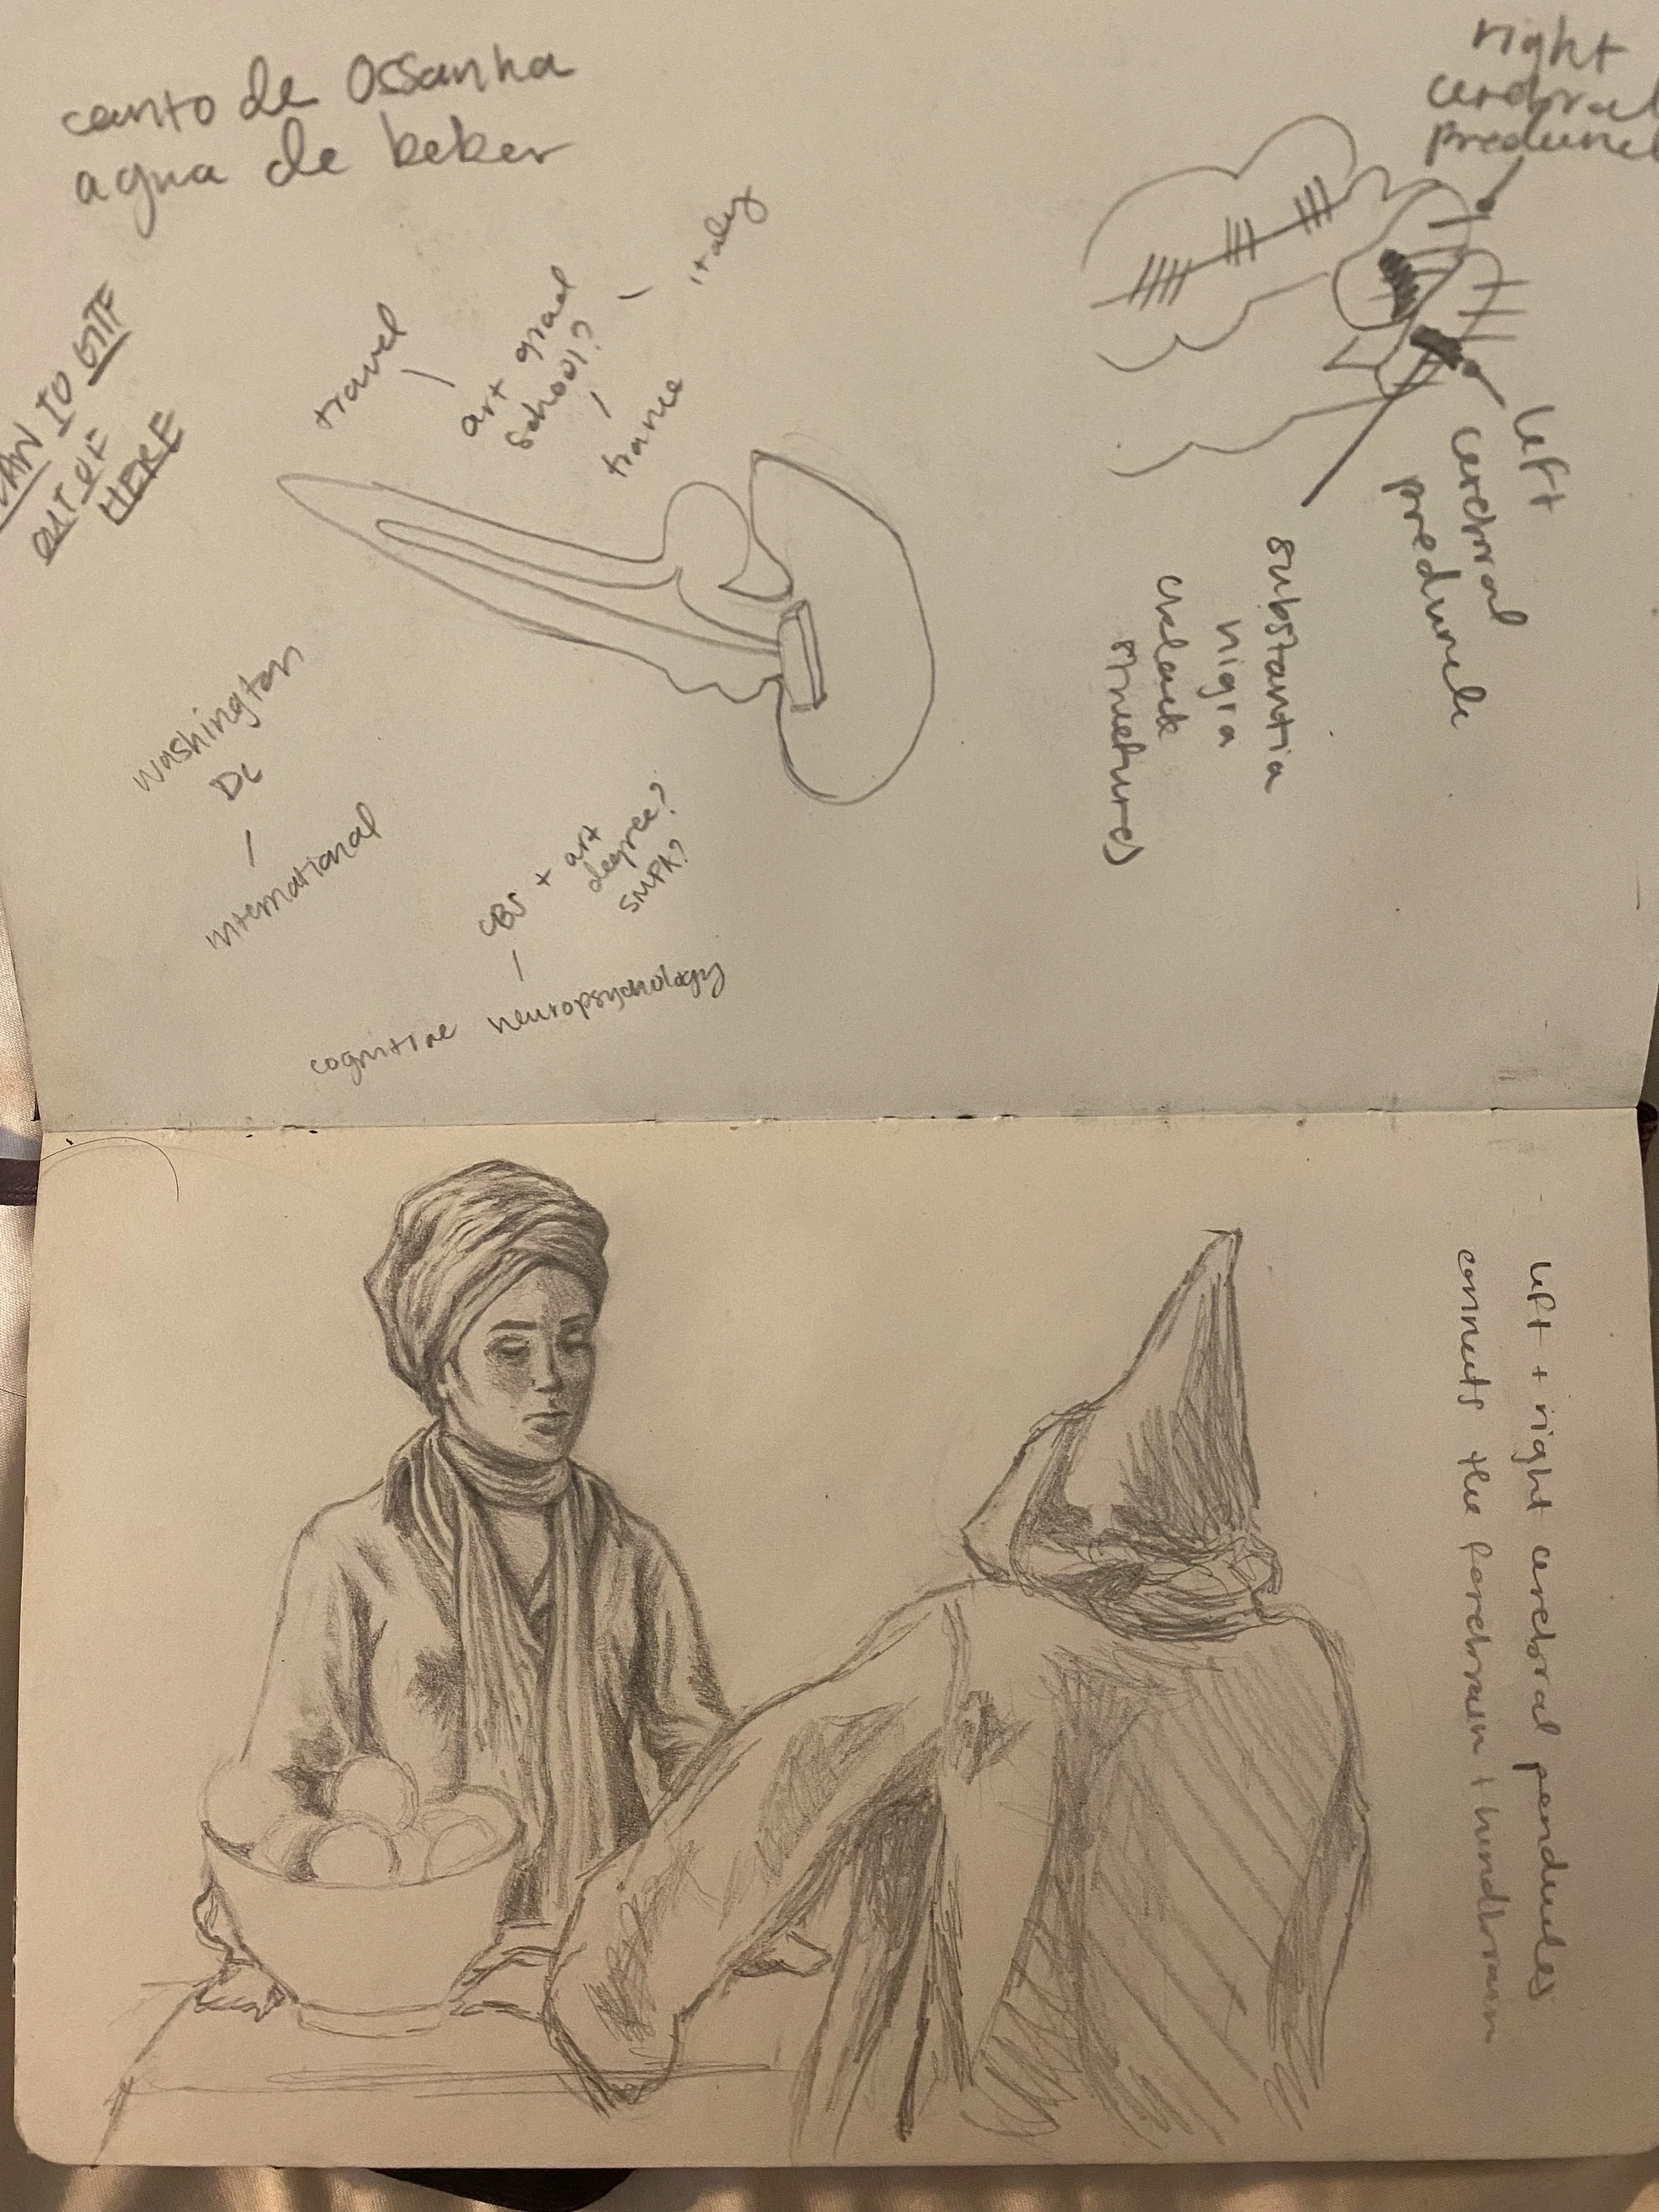 canto de Ossanha
agua de beber
right
cerebral
PLAN TO GTF
OUT OF
HERE
travel
art grad
school?
france
italy
left
cerebral
preduncle
substantia
nigra
structures)
washington
DC
international
CBS + art
degree?
SMPA?
cognitive neuropsychology
left + right cerebral penducles
connects the forebrain + hindbrain